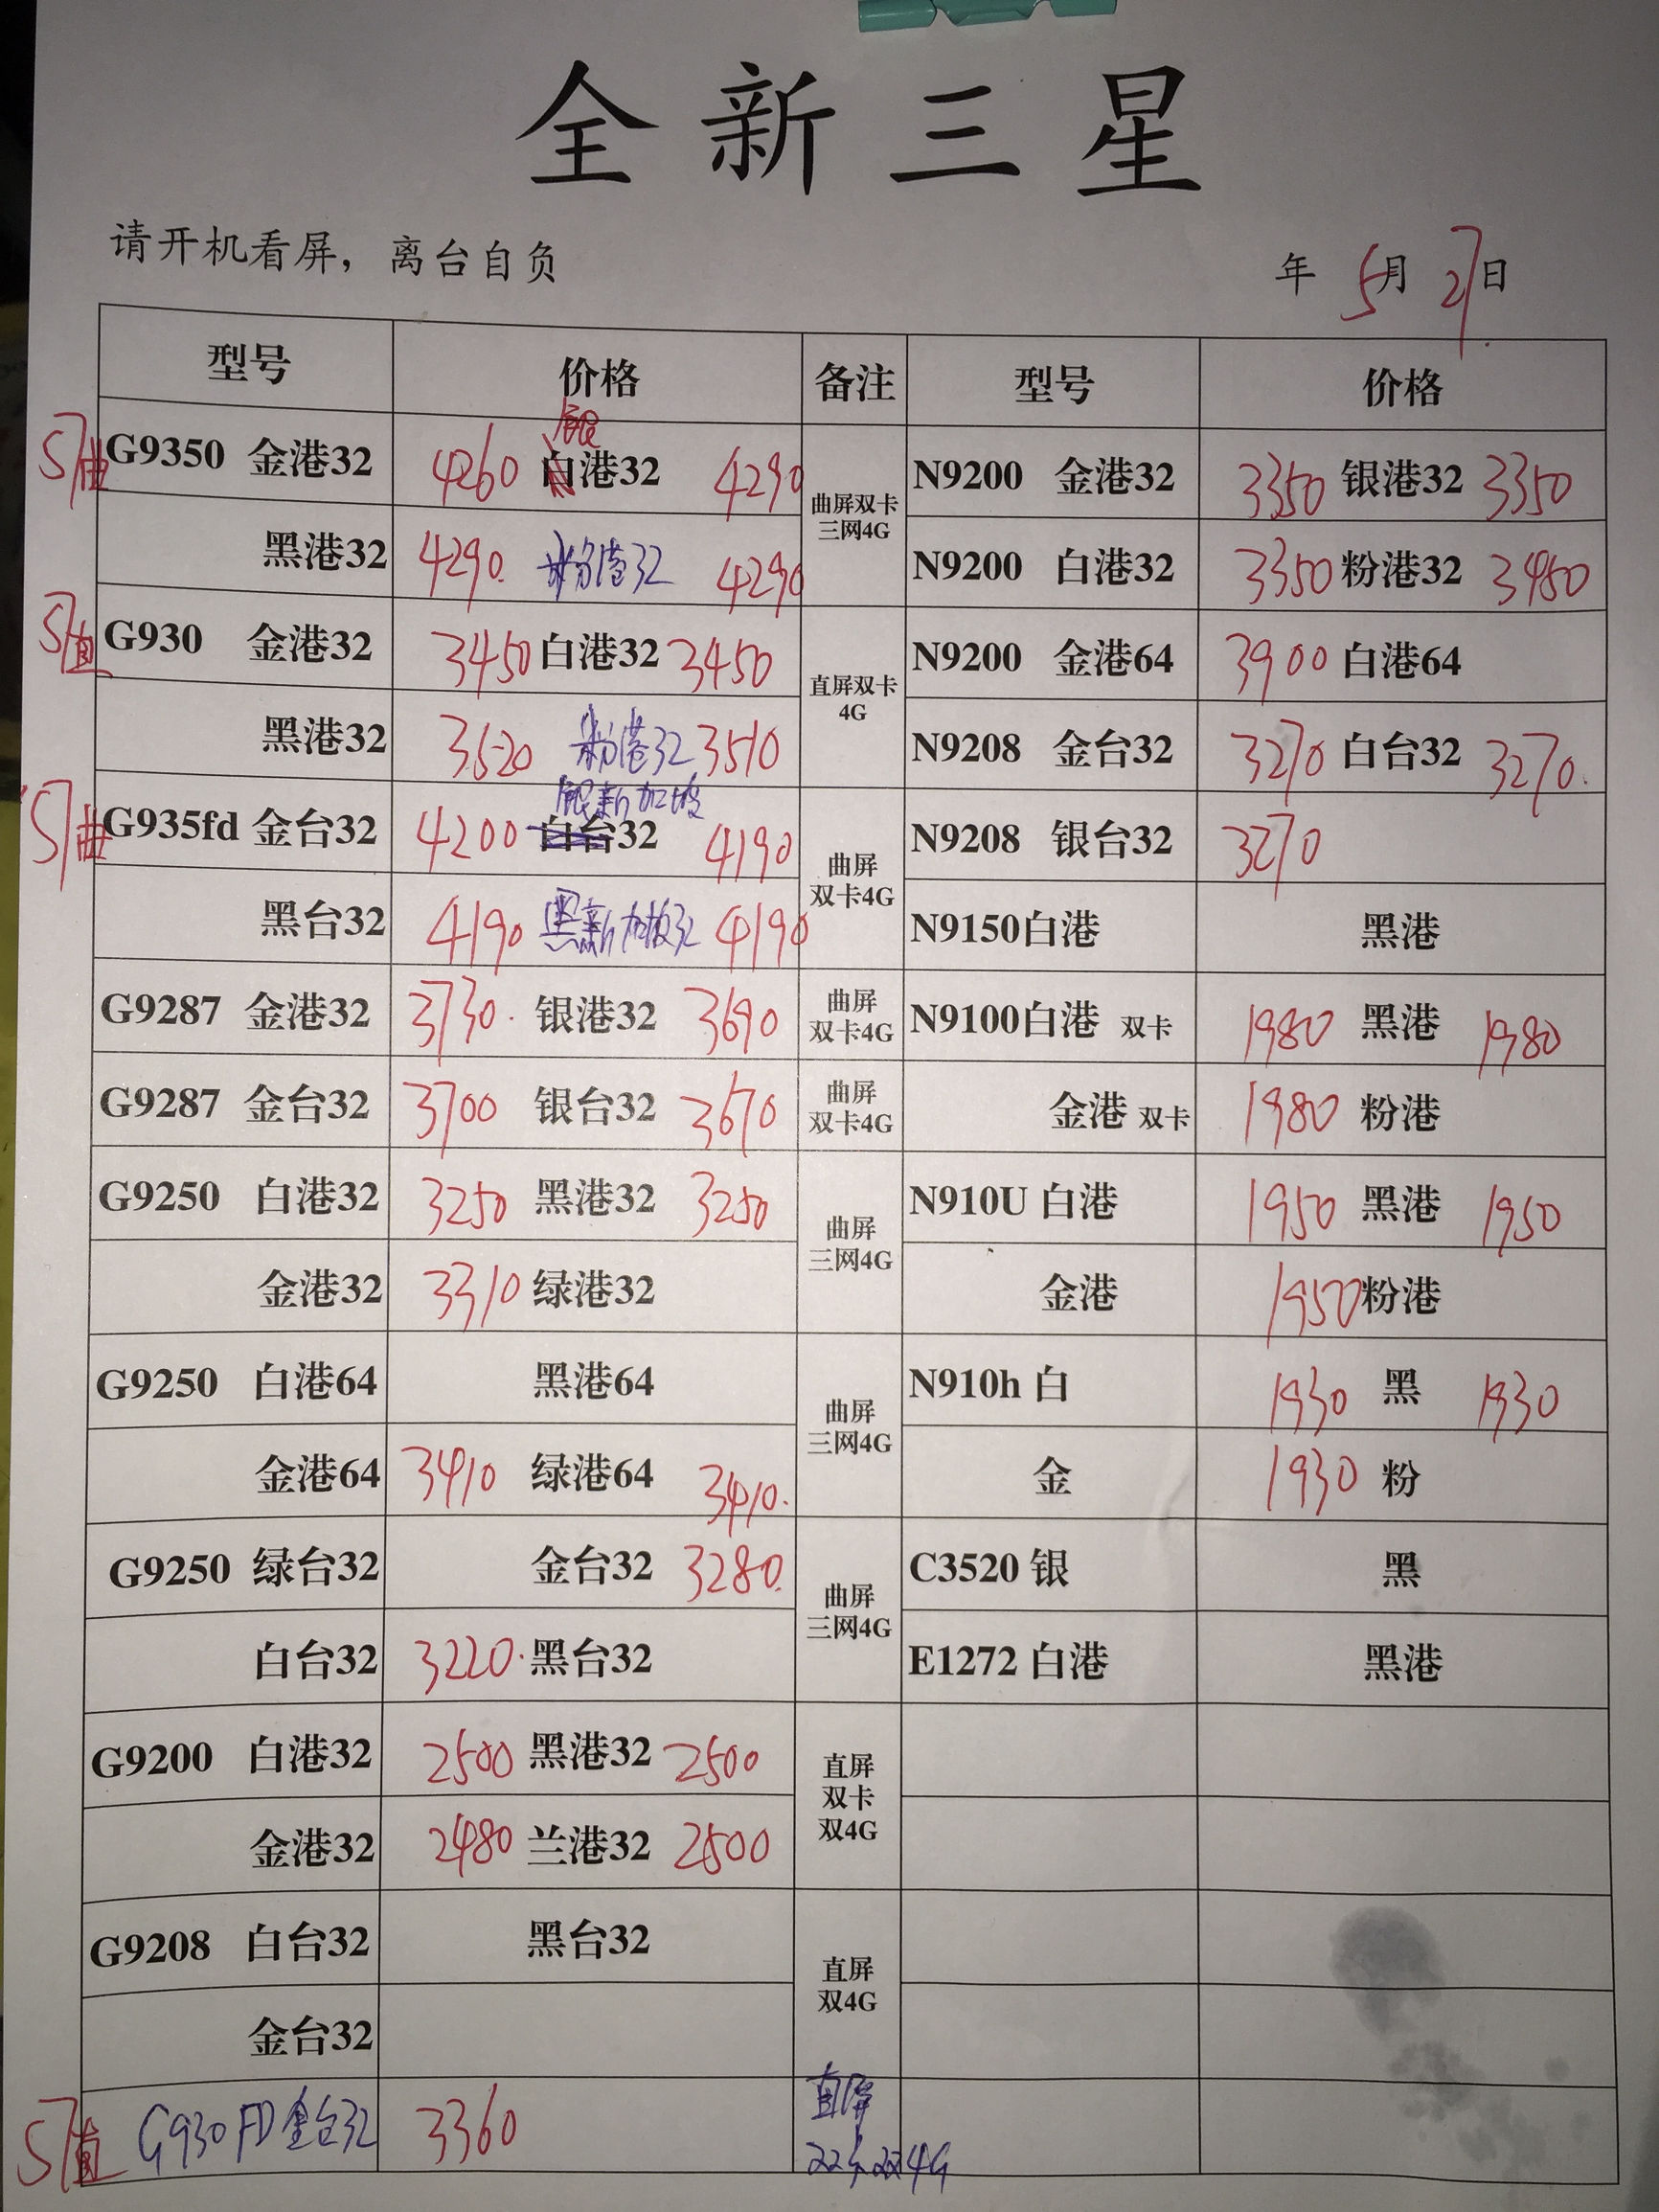 全新三星
请开机看屏，离台自负
年 5月 27日
型号 价格 备注 型号 价格
S7曲 G9350 金港32 4260 银港32 4290 曲屏双卡三网4G N9200 金港32 3350 银港32 3350
黑港32 4290 粉港32 4290 N9200 白港32 3350 粉港32 3450
S7直 G930 金港32 3450 白港32 3450 直屏双卡4G N9200 金港64 3900 白港64
黑港32 3520 粉港32 3510 N9208 金台32 3270 白台32 3270
S7曲 G935fd 金台32 4200 银新加坡32 4190 曲屏双卡4G N9208 银台32 3270
黑台32 4190 黑新加坡32 4190 N9150白港 黑港
G9287 金港32 3730 银港32 3690 曲屏双卡4G N9100白港 双卡 1980 黑港 1980
G9287 金台32 3700 银台32 3670 曲屏双卡4G 金港 双卡 1980 粉港
G9250 白港32 3250 黑港32 3250 曲屏三网4G N910U 白港 1950 黑港 1950
金港32 3310 绿港32 金港 1950 粉港
G9250 白港64 黑港64 曲屏三网4G N910h 白 1930 黑 1930
金港64 3410 绿港64 3410 金 1930 粉
G9250 绿台32 金台32 3280 曲屏三网4G C3520 银 黑
白台32 3220 黑台32 E1272 白港 黑港
G9200 白港32 2500 黑港32 2500 直屏双卡双4G
金港32 2480 兰港32 2500
G9208 白台32 黑台32 直屏双4G
金台32
S7直 G930FD金台32 3360 直屏双卡双4G